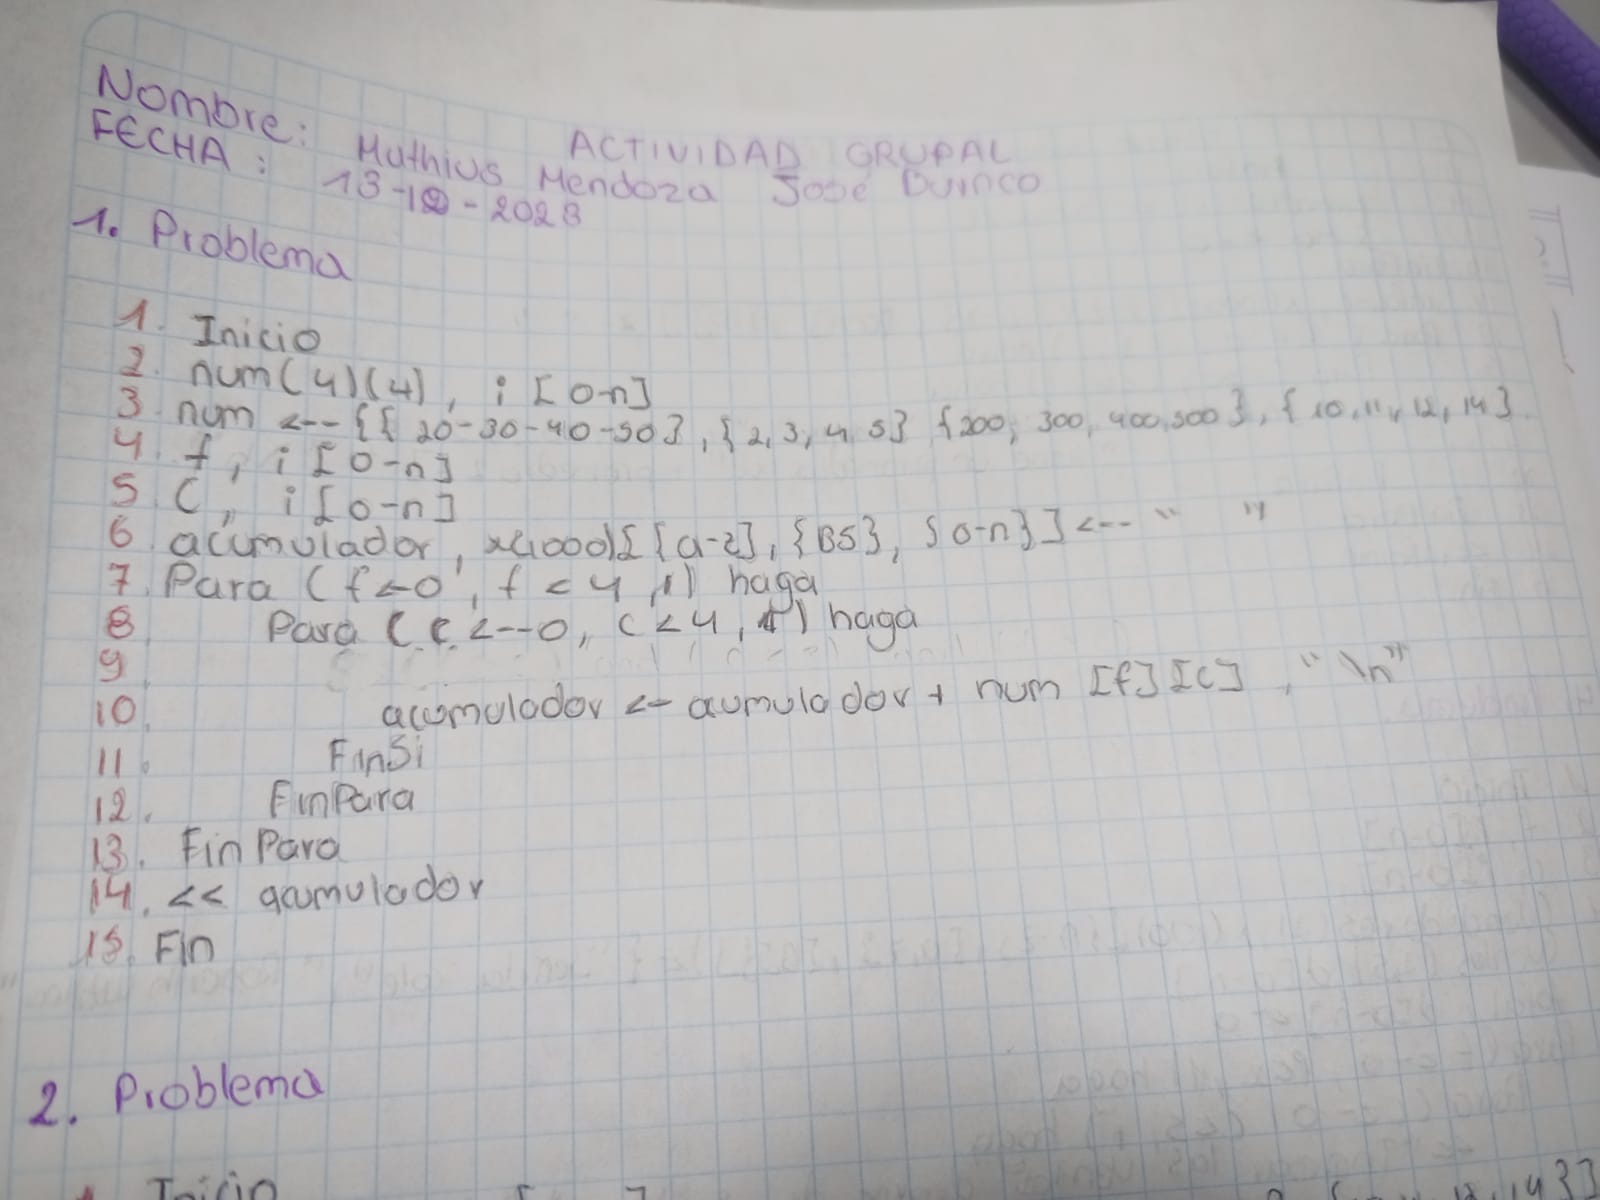 ACTIVIDAD GRUPAL
Nombre: Mathius Mendoza José
FECHA: 13-12-2023
1. Problema
1. Inicio
2. num(4)(4), i [0-n]
3 num <--{{ 20-30-40-50}, {2, 3, 4, 5} {200, 300, 400, 500}, {10, 11, 12, 14}
4. f, i [0-n]
5 C, i [0-n]
6 acumulador, x(1000)[[a-z], {BS}, {0-n}] <-- " "
7. Para (f<-0, f < 4, 1) haga
8 Para (c <--0, c < 4, 1) haga
9
10. acumulador <- aumulador + num [f][c], "\n"
11. FinSi
12. FinPara
13. Fin Para
14. << acumulador
15. Fin
2. Problema
1. Inicio